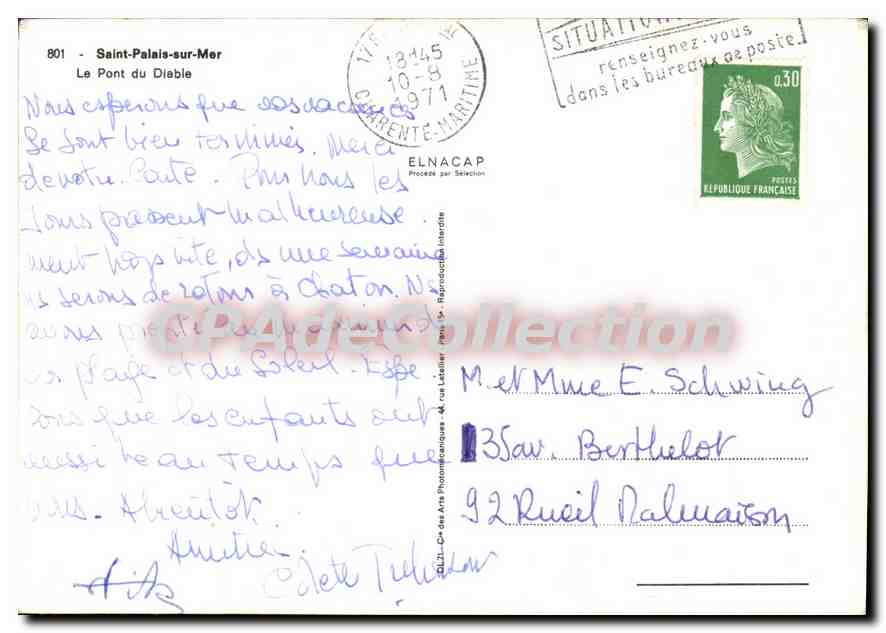 801 - Saint-Palais-sur-Mer
Le Pont du Diable
Nous esperons que vos vacances
se sont bien terminés. Merci
de votre Carte. Pour nous les
Jours passent malheureuse
ment trop vite, ds une semaine
ns serons de retour à Chatou. Ns
avons profité au maximum de
la plage et du Soleil. Espe
rons que les enfants ont
aussi beau temps que
nous. A bientôt.
Amitiés.
Colette
17
18H45
10-8
1971
CHARENTE-MARITIME
SITUATION
renseignez-vous
dans les bureaux de poste
0,30
POSTES
REPUBLIQUE FRANÇAISE
ELNACAP
Procédé par Sélection
Cie des Arts Photomécaniques - 44, rue Letellier - Paris 15e - Reproduction Interdite
CPAdeCollection
M et Mme E. Schwing
35 av. Berthelot
92 Rueil Malmaison